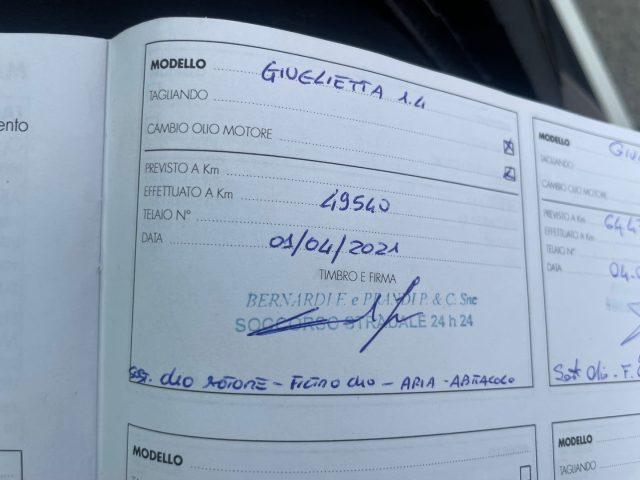 ento
MODELLO GIUGLIETTA 1.4
TAGLIANDO
CAMBIO OLIO MOTORE
PREVISTO A Km
EFFETTUATO A Km 49540
TELAIO N°
DATA 01/04/2021
TIMBRO E FIRMA
BERNARDI F. e PRANDI P. & C. Snc
SOCCORSO STRADALE 24 h 24
Sost. OLIO MOTORE - FILTRO OLIO - ARIA - ABITACOLO
MODELLO GIU
TAGLIANDO
CAMBIO OLIO MOTORE
PREVISTO A Km
EFFETTUATO A Km
TELAIO N°
DATA 04.
Sost Olio - F.
MODELLO
MODELLO